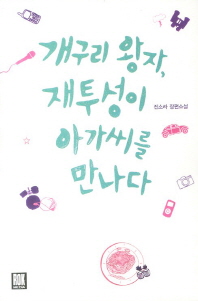 개구리 왕자,
재투성이
아가씨를
만나다
진소라 장편소설
ROK
MEDIA